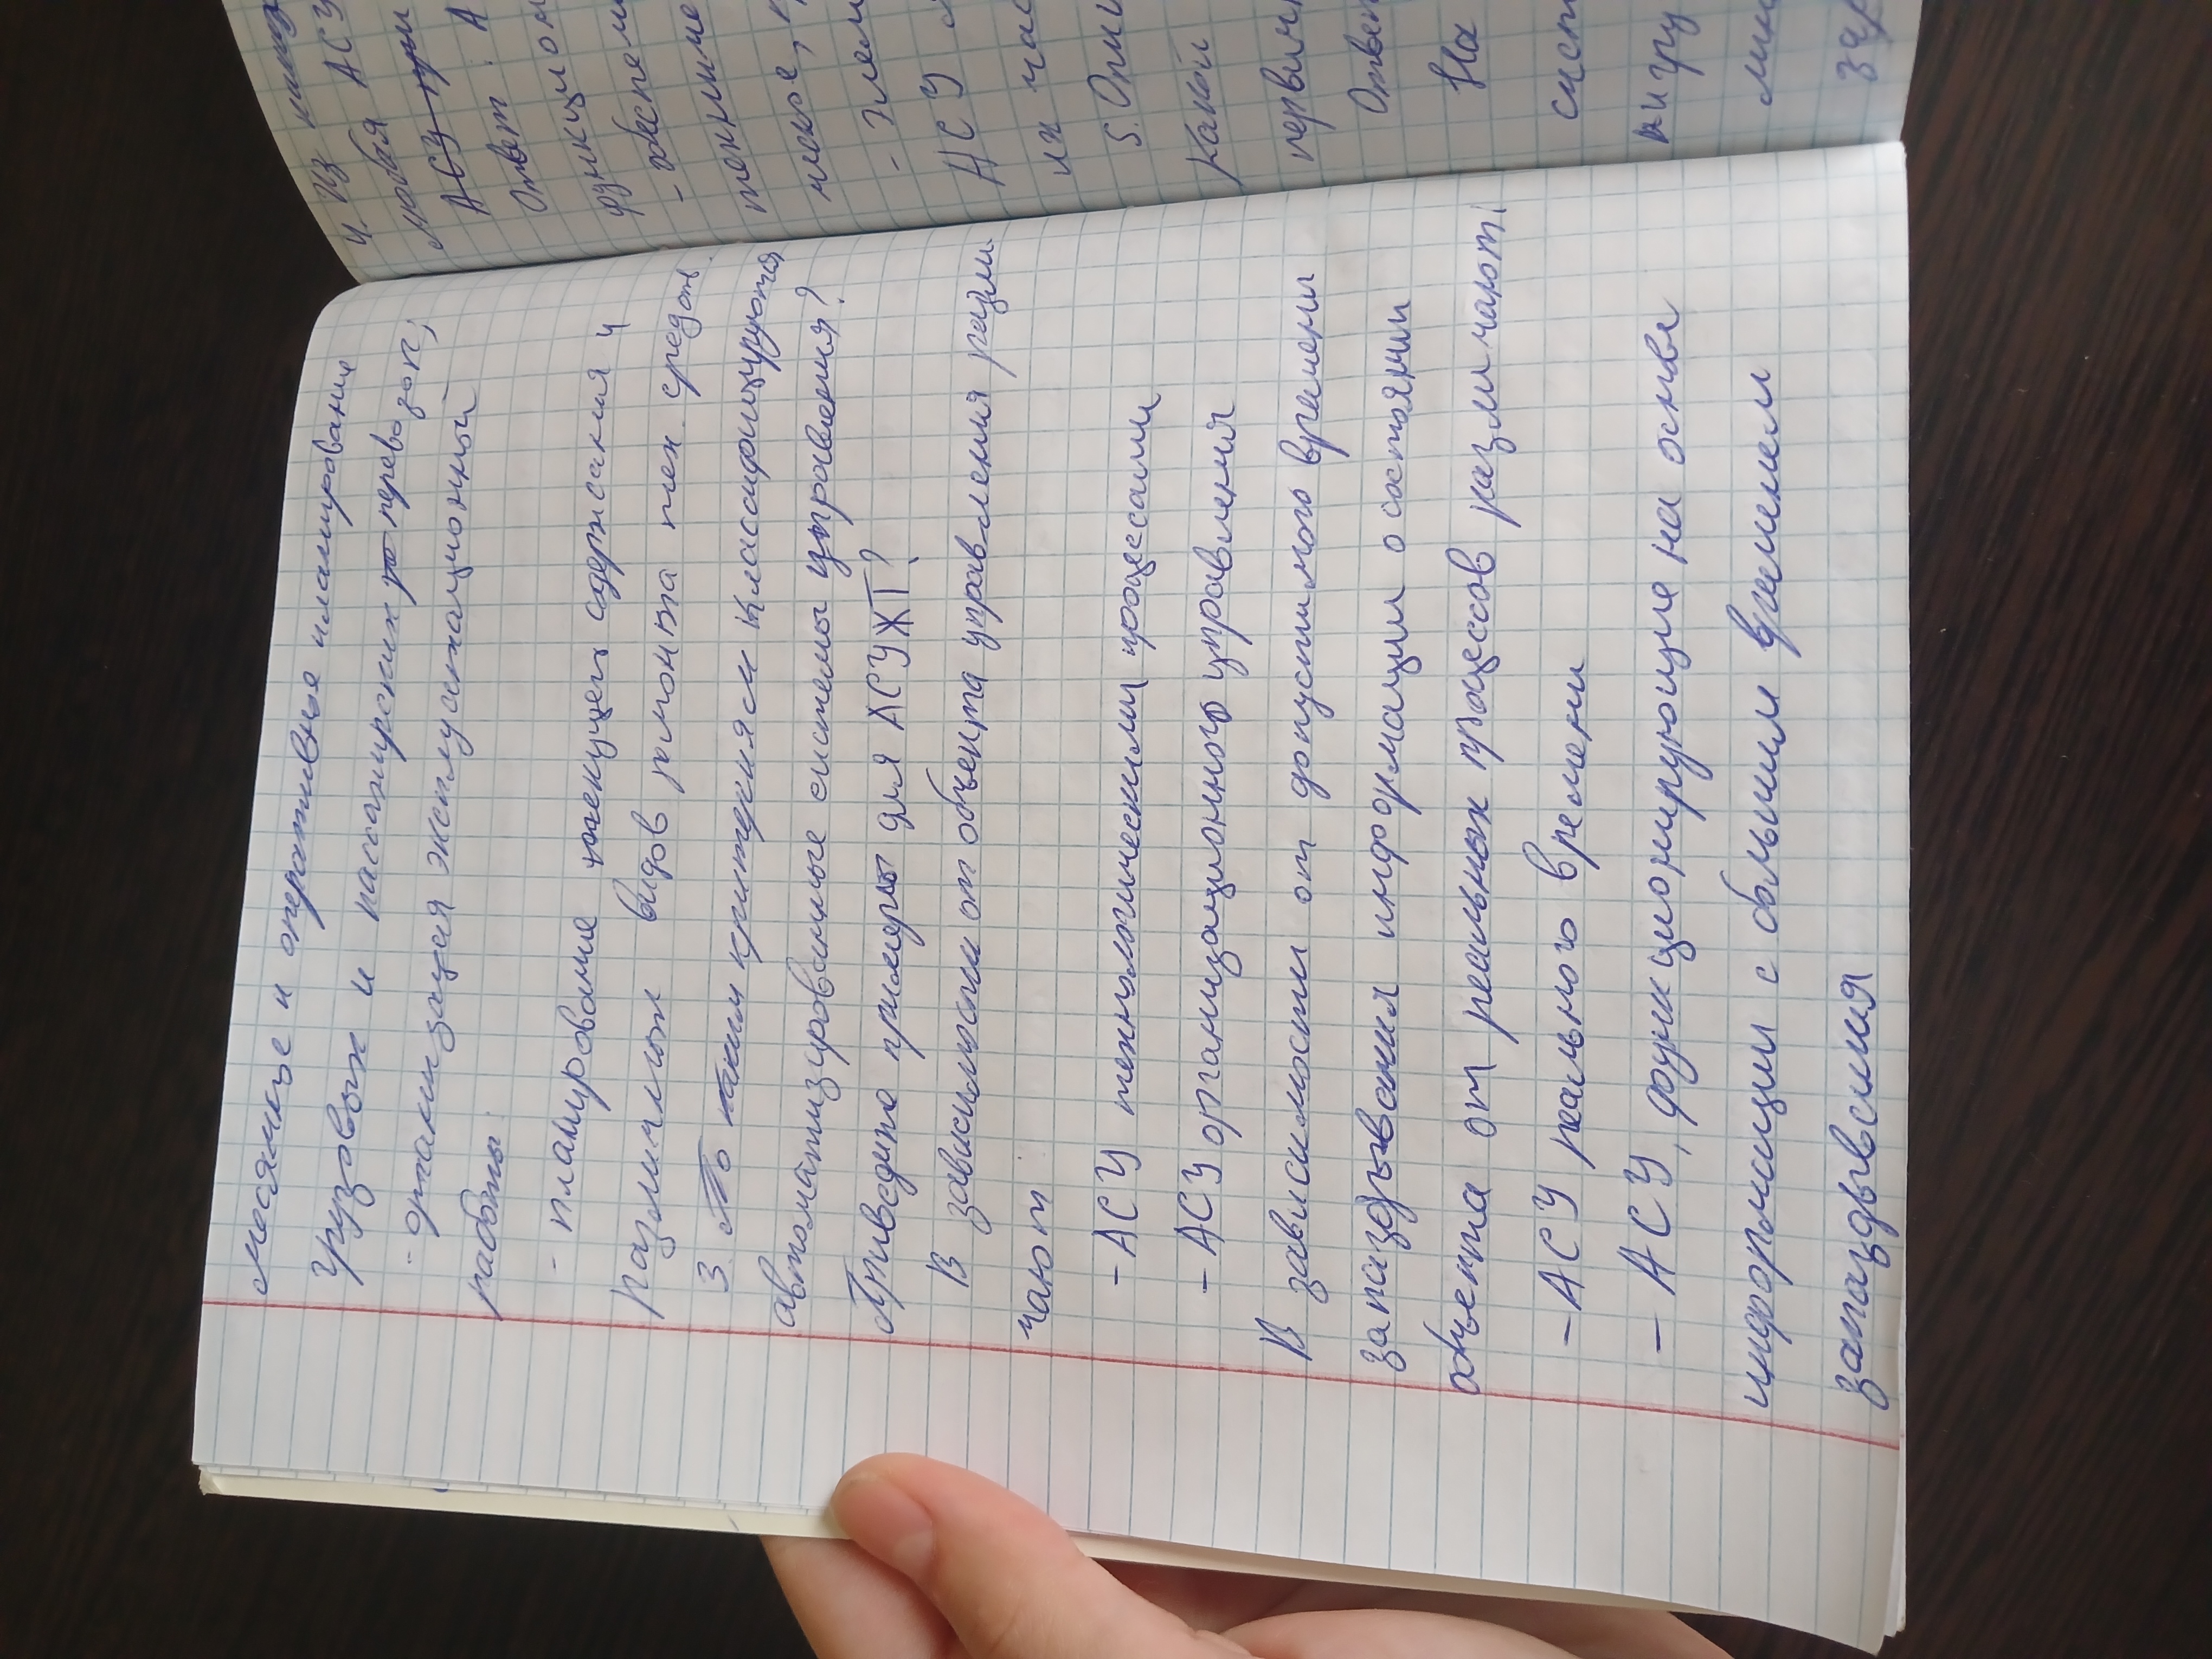 месячные и оперативные планирование
грузовых и пассажирских перевозок;
- организация эксплуатационный
работы;
- планирование текущего содержания и
различных видов ремонта тех. средств.
3. По каким критериям классифицируются
автоматизированные системы управления?
Приведите примеры для АСУЖТ?
В зависимости от объекта управления разли
чают
- АСУ технологическими процессами
- АСУ организационного управления
В зависимости от допустимого времени
запаздывания информации о состоянии
объекта от реальных процессов различают:
- АСУ реального времени
- АСУ, функционирующие на основе
информации с большим временем
запаздвения
4. Из
АСУ
АСУ при
Ответ: А
функцион
- обеспече
техничес
ческое,
- элем
АСУ
ля час
5. Опи
какой
первичн
Ответ
На
сист